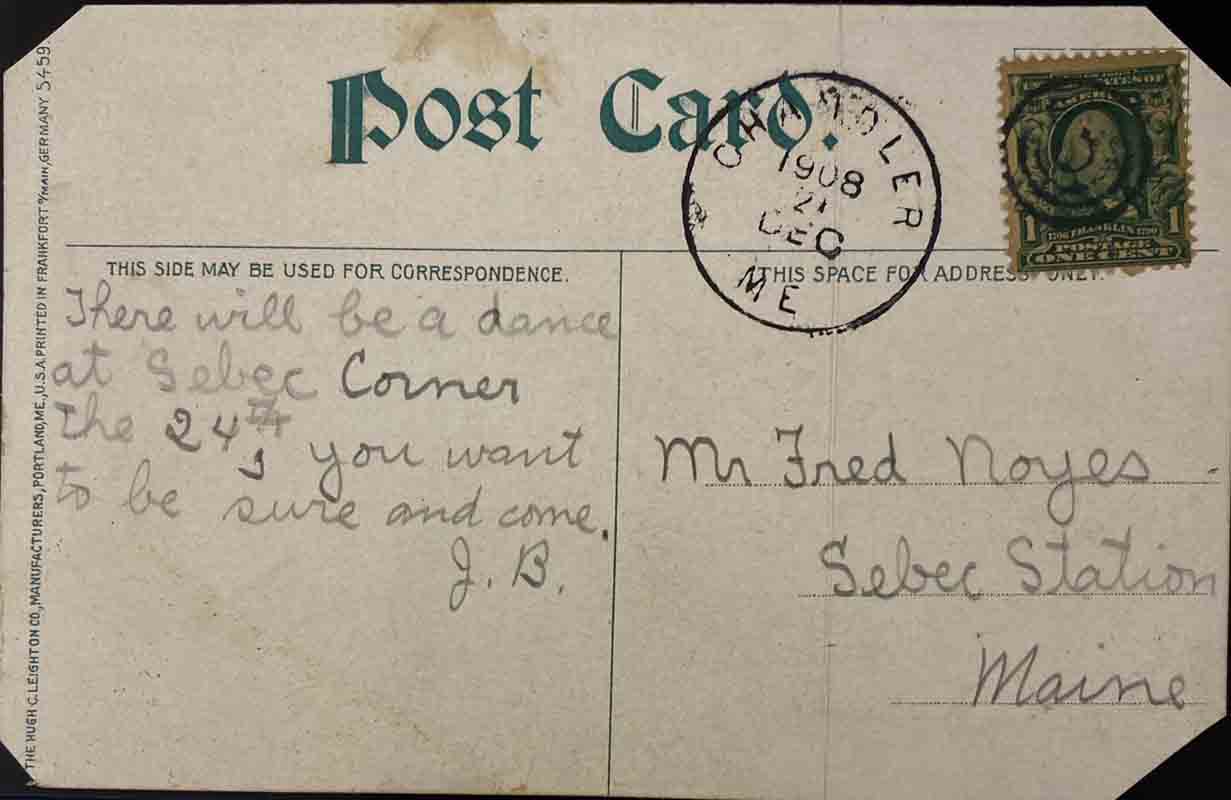 Post Card.
CHANDLER
1908
21
DEC
ME
AMERICA
1
1706 FRANKLIN 1790
1
POSTAGE
ONE CENT
THIS SIDE MAY BE USED FOR CORRESPONDENCE.
THIS SPACE FOR ADDRESS ONLY.
There will be a dance
at Sebec Corner
the 24th, you want
to be sure and come.
J. B.
Mr Fred Noyes
Sebec Station
Maine
THE HUGH C. LEIGHTON CO., MANUFACTURERS, PORTLAND, ME., U.S.A. PRINTED IN FRANKFORT o/MAIN, GERMANY 5459.